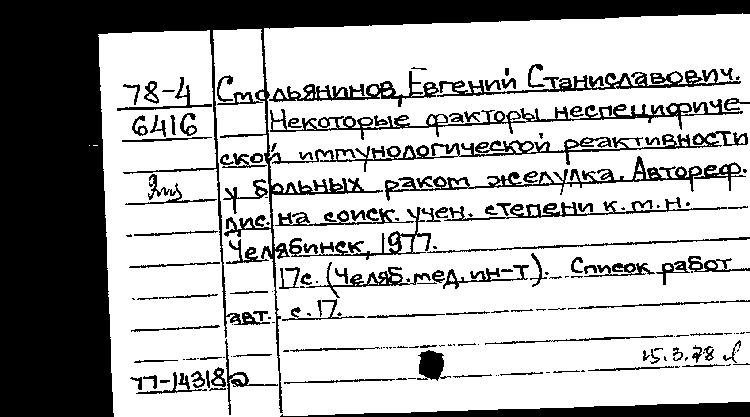 78-4 Стольянинов, Евгений Станиславович.
6416 Некоторые факторы неспецифиче-
ской иммунологической реактивности
у больных раком желудка. Автореф.
дис. на соиск. учен. степени к.м.н.
Челябинск, 1977.
17с. (Челяб. мед. ин-т). Список работ
авт. с. 17.
15.3.78
77-14318а